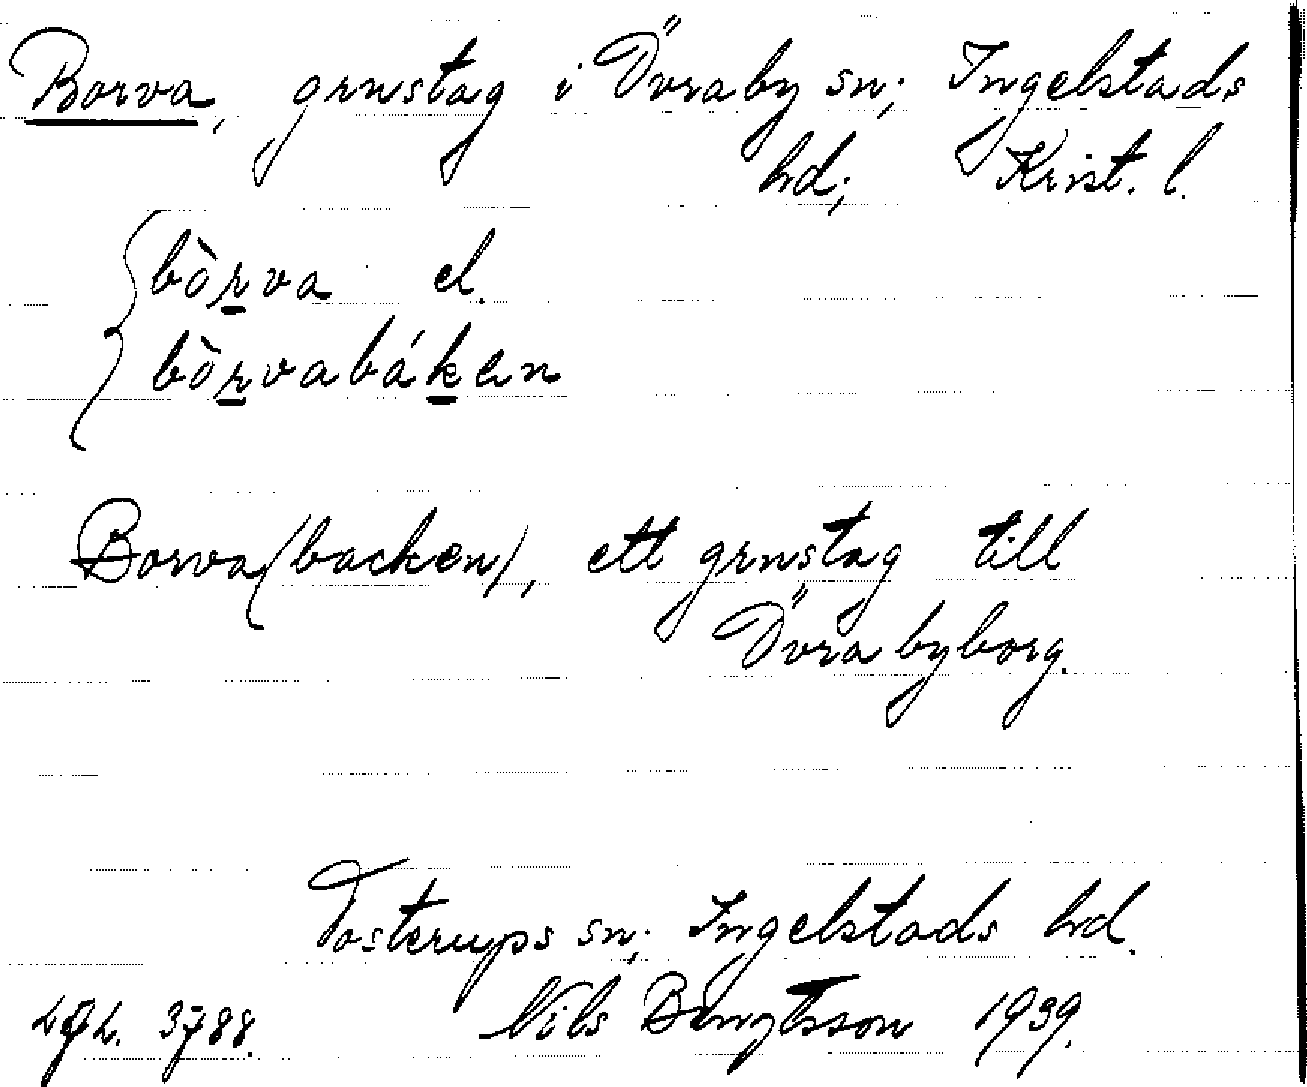 Borva, grnstag i Övraby sn; Ingelstads
hd; Krist. l.
bòrva el.
bòrvabáken
Borva(backen), ett grnstag till
Övrabyborg.
Tosterups sn; Ingelstads hd.
3788. Nils Bengtsson 1939.